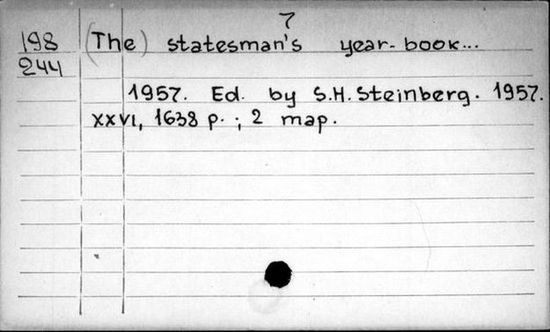 7
198 (The) statesman's year-book...
244
1957. Ed. by S.H. Steinberg. 1957.
XXVI, 1638 p. ; 2 map.